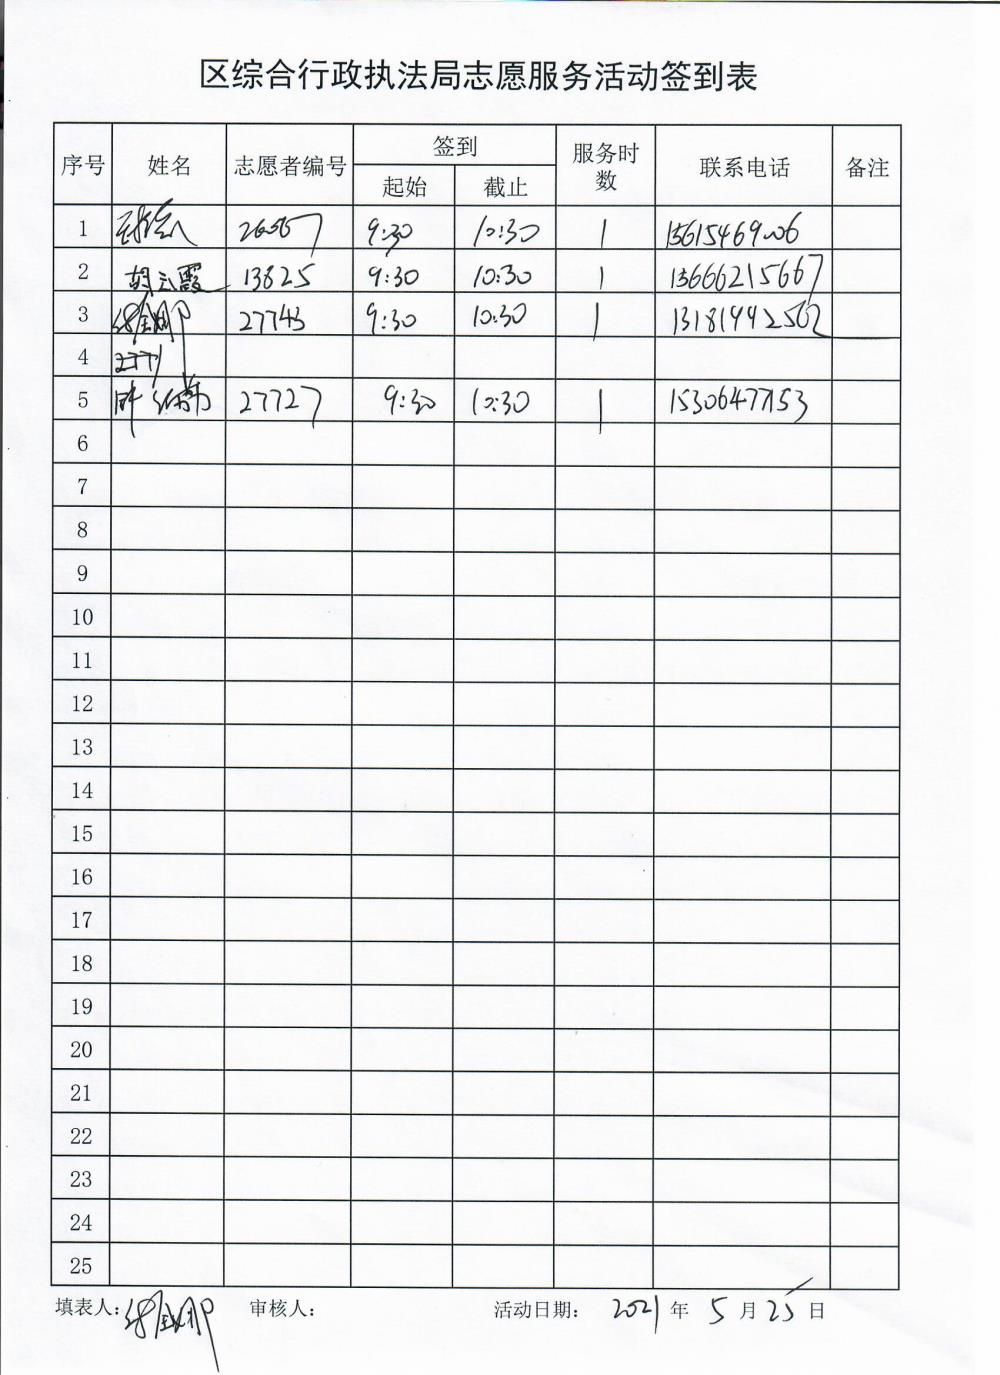 区综合行政执法局志愿服务活动签到表
序号 姓名 志愿者编号 签到 服务时数 联系电话 备注
起始 截止
1 26567 9:30 10:30 1
2 胡云霞 13825 9:30 10:30 1 13666215667
3 27743 9:30 10:30 1 13181992502
4
5 27727 9:30 10:30 1 15306477153
6
7
8
9
10
11
12
13
14
15
16
17
18
19
20
21
22
23
24
25
填表人: 审核人: 活动日期: 2021 年 5 月 25 日